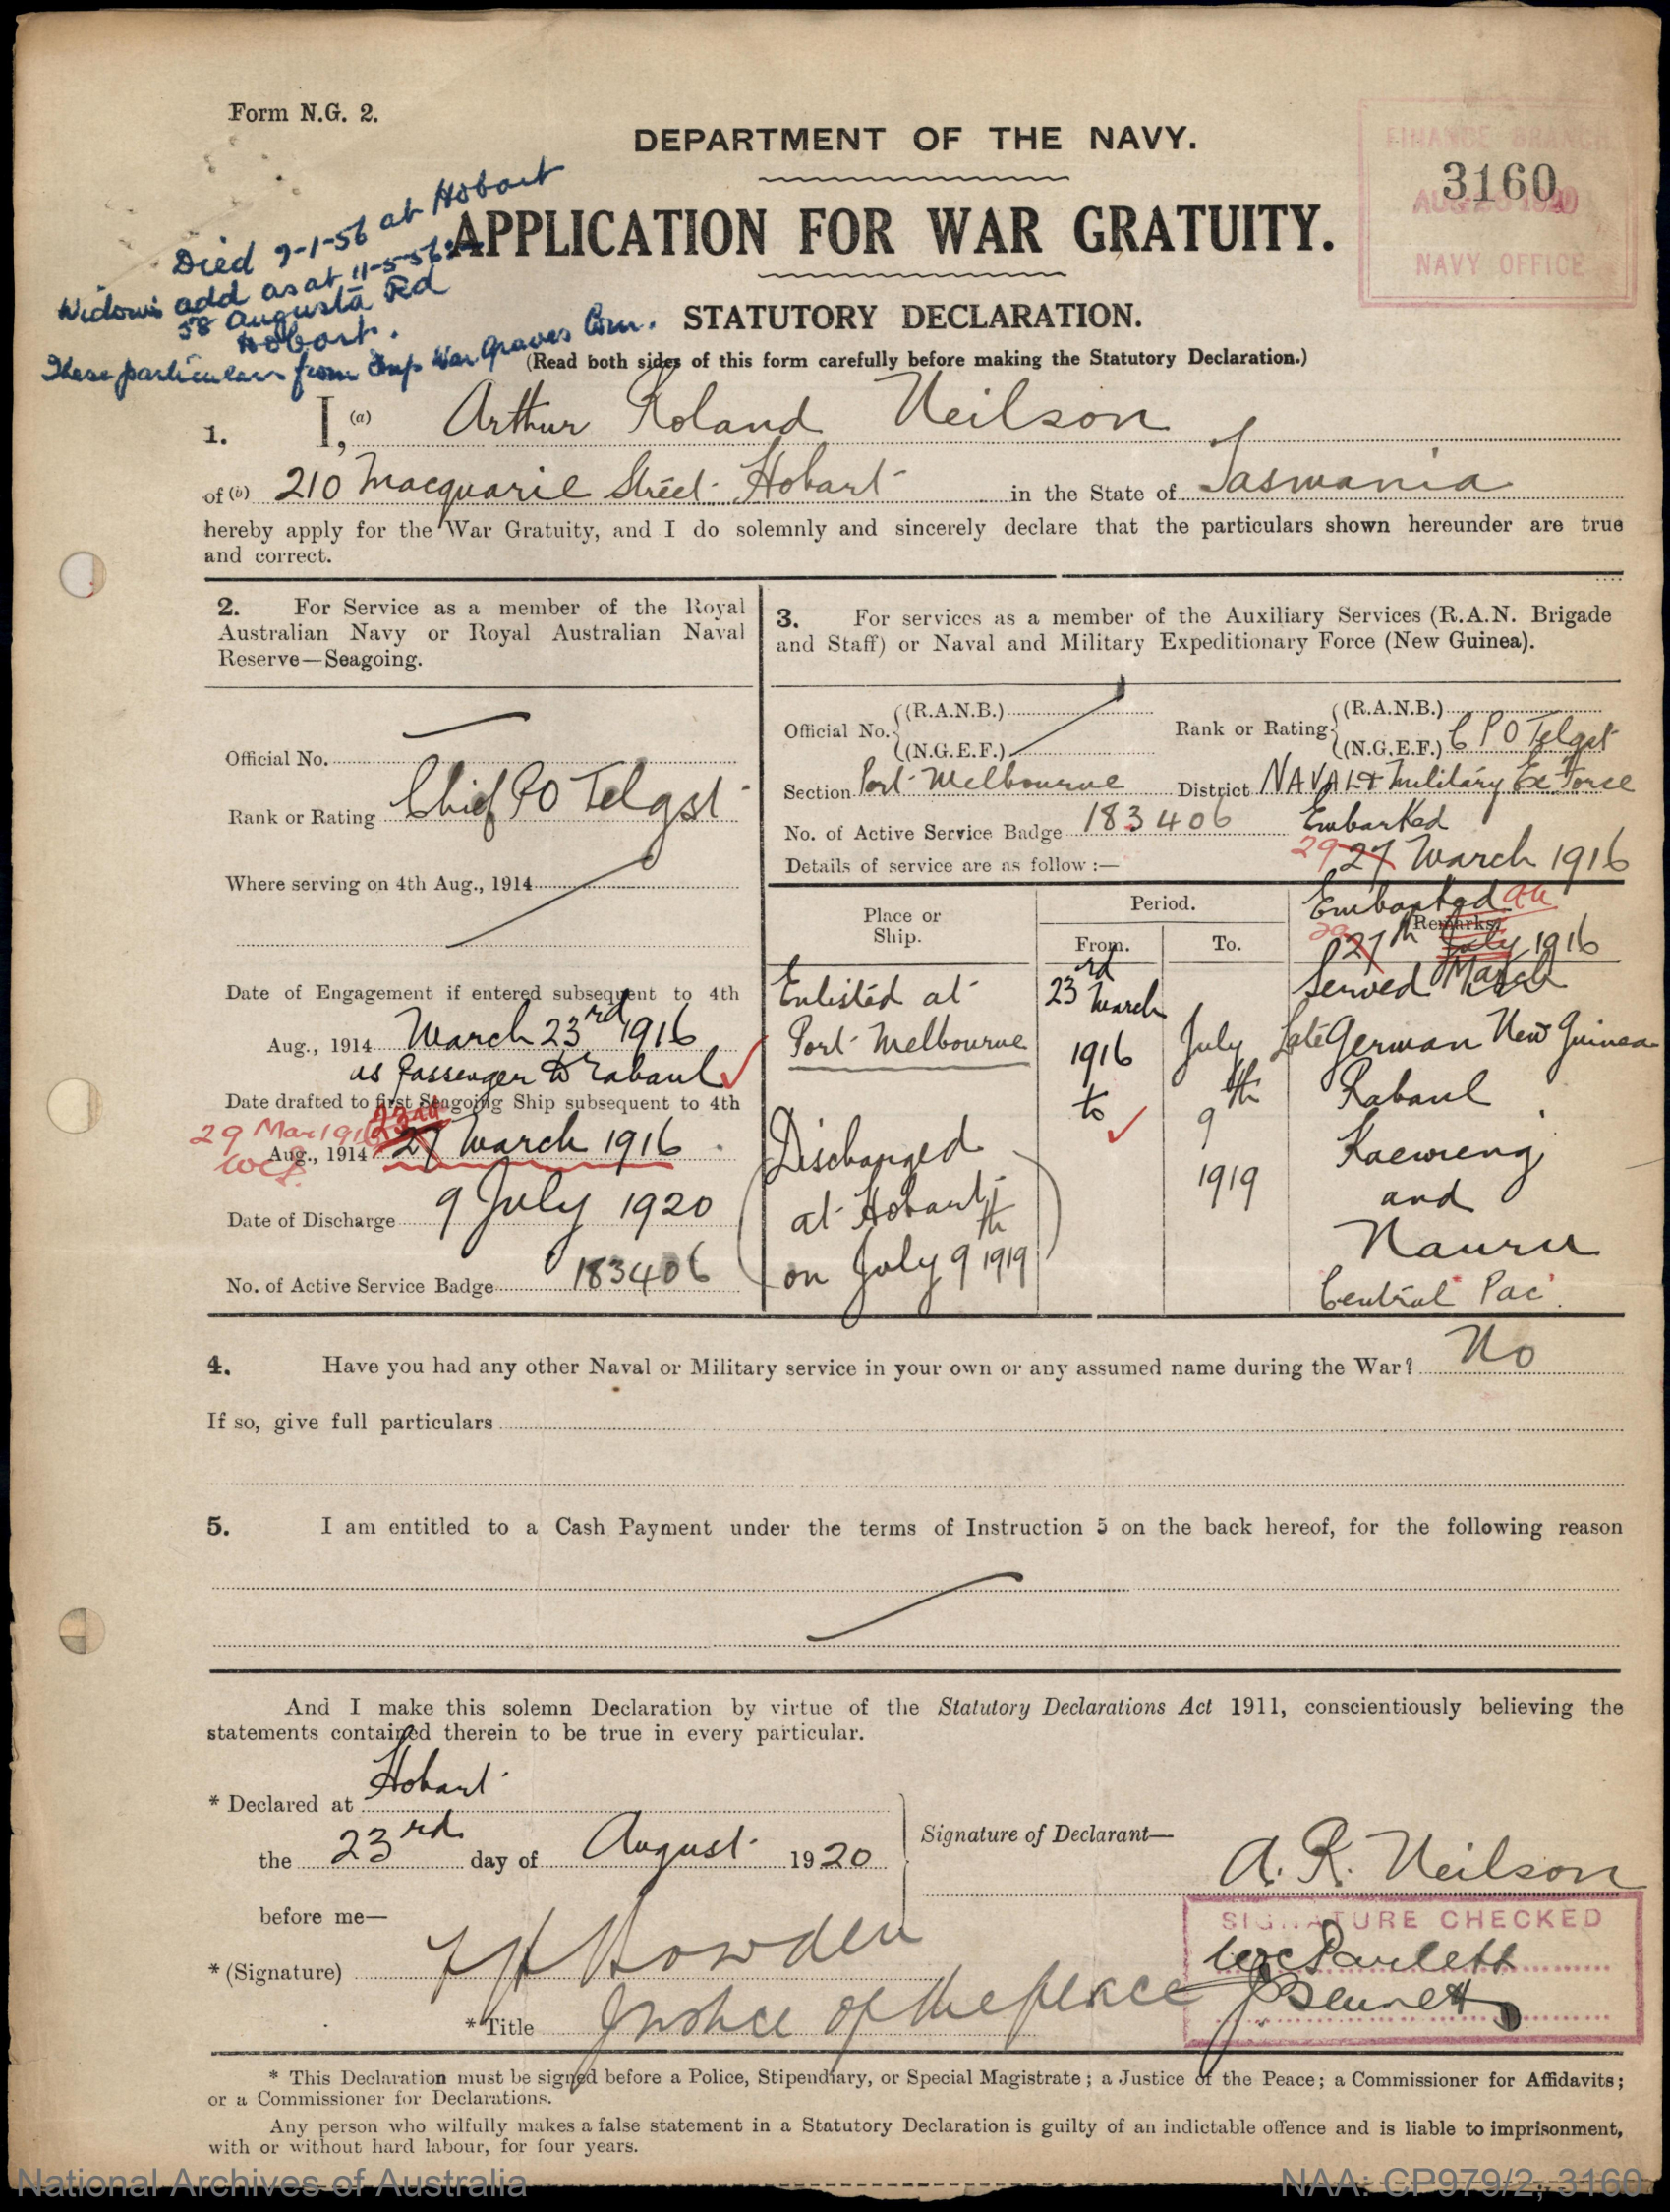 Form N.G. 2.
DEPARTMENT OF THE NAVY.
FINANCE BRANCH
3160
AUG 1920
NAVY OFFICE
APPLICATION FOR WAR GRATUITY.
Died 9-1-56 at Hobart
Widow's add as at 11-5-56
58 Augusta Rd
Hobart.
These particulars from Imp War Graves Com.
STATUTORY DECLARATION.
(Read both sides of this form carefully before making the Statutory Declaration.)
1. I, (a) Arthur Roland Neilson
of (b) 210 Macquarie Street Hobart in the State of Tasmania
hereby apply for the War Gratuity, and I do solemnly and sincerely declare that the particulars shown hereunder are true
and correct.
2. For Service as a member of the Royal
Australian Navy or Royal Australian Naval
Reserve—Seagoing.
Official No.
Rank or Rating Chief PO Telgst
Where serving on 4th Aug., 1914
Date of Engagement if entered subsequent to 4th
Aug., 1914 March 23rd 1916
as Passenger to Rabaul
Date drafted to first Seagoing Ship subsequent to 4th
29 Mar 1916
Aug., 1914 27 March 1916
Date of Discharge 9 July 1920
No. of Active Service Badge 183406
3. For services as a member of the Auxiliary Services (R.A.N. Brigade
and Staff) or Naval and Military Expeditionary Force (New Guinea).
Official No. (R.A.N.B.)
(N.G.E.F.)
Rank or Rating (R.A.N.B.)
(N.G.E.F.) C P O Telgst
Section Port Melbourne District NAVAL & Military Ex Force
No. of Active Service Badge 183406 Embarked
Details of service are as follow :— 29 27 March 1916
Place or
Ship.
Period.
From.
To.
Remarks.
Embarked
29 27th July 1916
March
Served
Enlisted at
Port Melbourne
23rd March
1916
to
July
9th
1919
Late German New Guinea
Rabaul
Kaewieng
and
Nauru
Central Pac.
Discharged
at Hobart
on July 9th 1919
4. Have you had any other Naval or Military service in your own or any assumed name during the War? No
If so, give full particulars
5. I am entitled to a Cash Payment under the terms of Instruction 5 on the back hereof, for the following reason
And I make this solemn Declaration by virtue of the Statutory Declarations Act 1911, conscientiously believing the
statements contained therein to be true in every particular.
* Declared at Hobart
the 23rd day of August 1920
Signature of Declarant—
A. R. Neilson
before me—
* (Signature) Bowden
* Title Justice of the peace
SIGNATURE CHECKED
Bennett
* This Declaration must be signed before a Police, Stipendiary, or Special Magistrate; a Justice of the Peace; a Commissioner for Affidavits;
or a Commissioner for Declarations.
Any person who wilfully makes a false statement in a Statutory Declaration is guilty of an indictable offence and is liable to imprisonment,
with or without hard labour, for four years.
National Archives of Australia
NAA: CP979/2, 3160